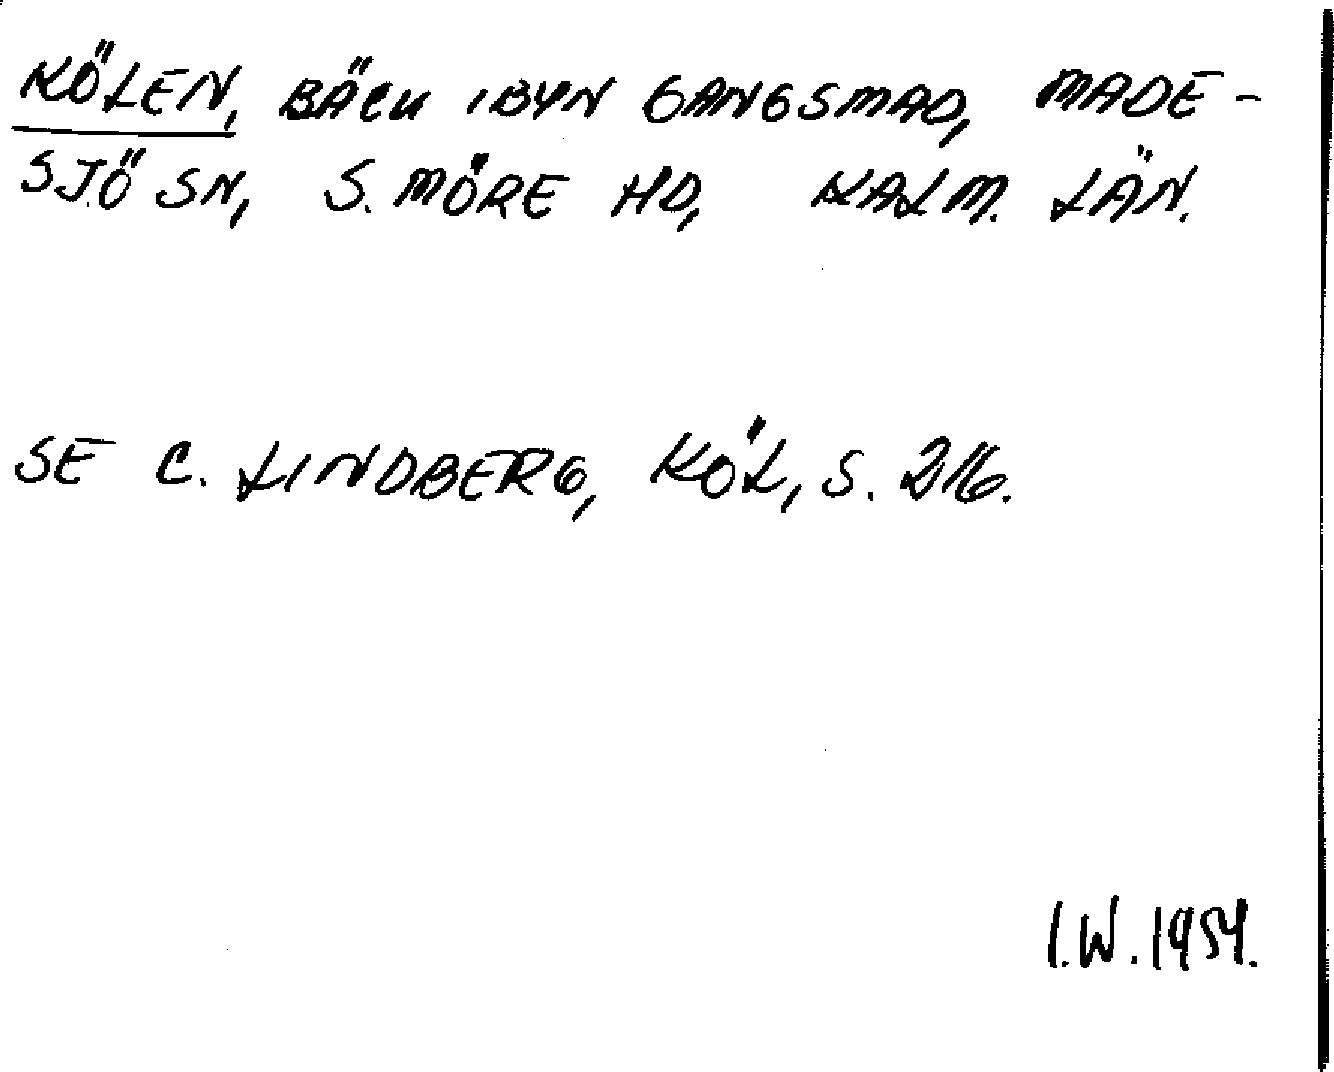 KÖLEN, BÄCK I BYN GANGSMAD, MADE-
SJÖ SN, S. MÖRE HD, KALM. LÄN.
SE C. LINDBERG, KÖL, S. 216.
I.W. 1954.